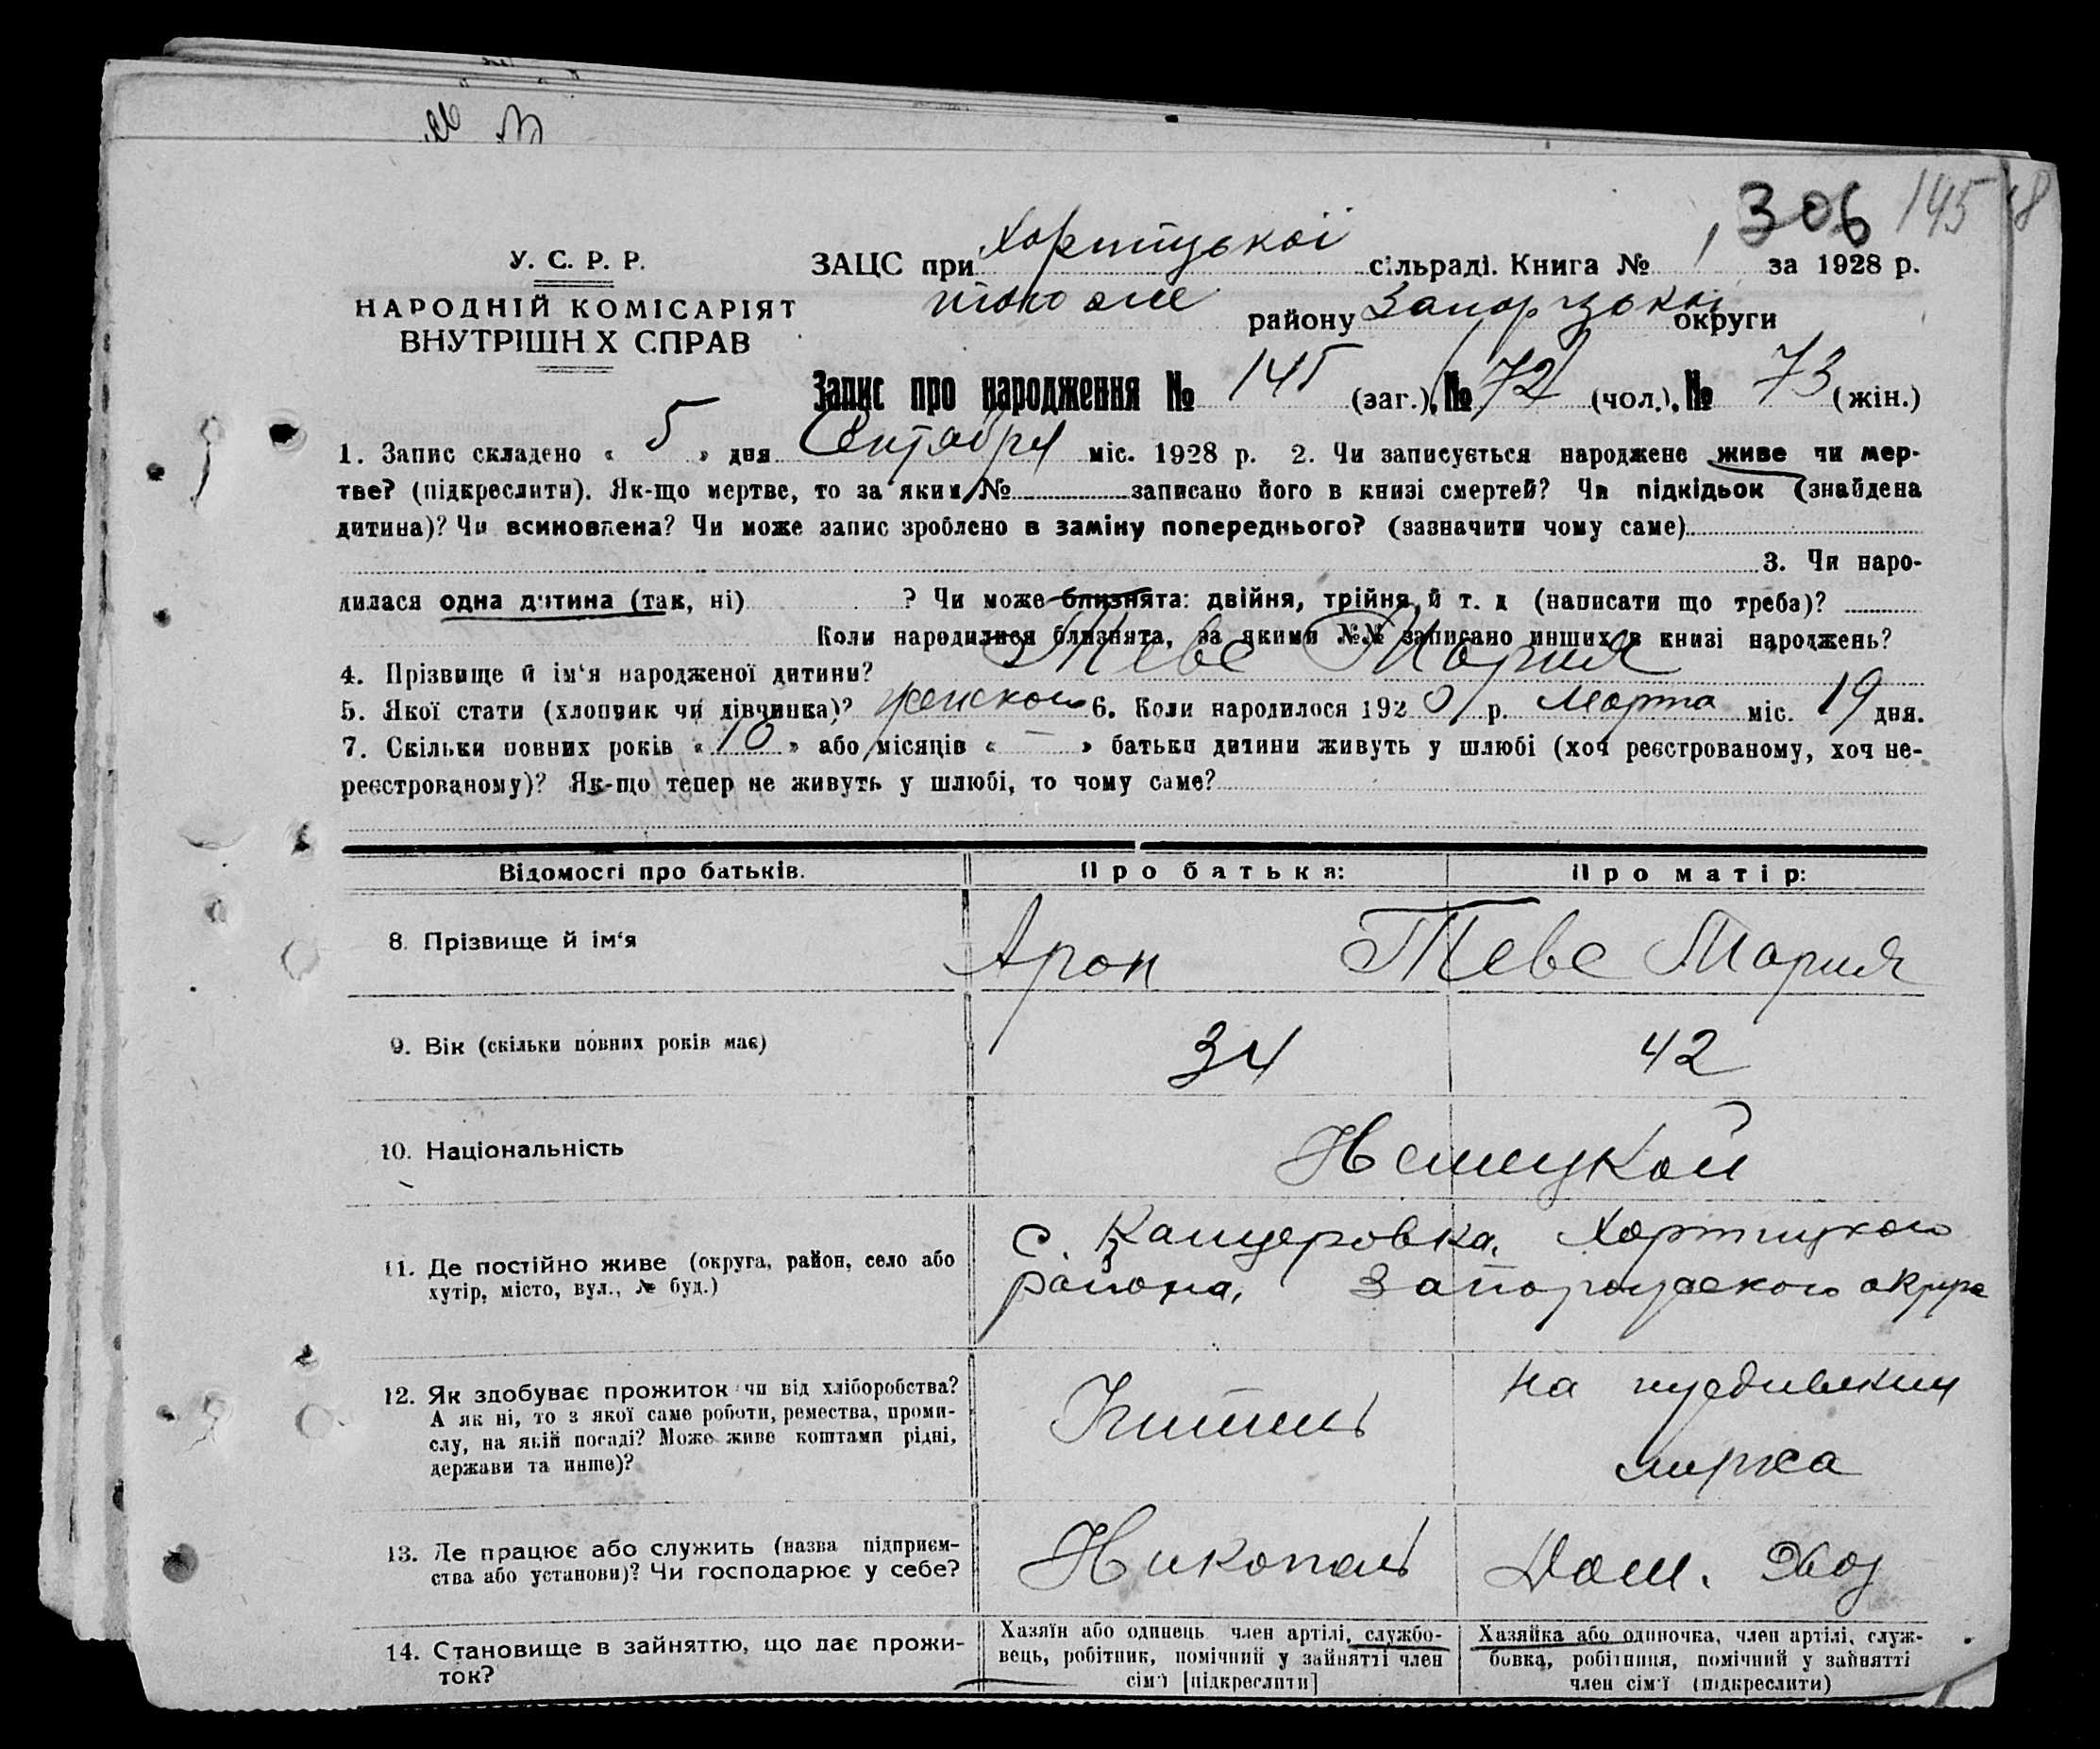 306 145
У. С. Р. Р.
НАРОДНІЙ КОМІСАРІЯТ
ВНУТРІШН Х СПРАВ
ЗАЦС при Хортицької сільраді. Книга № 1 за 1928 р.
того же району Запорізької округи
Запис про народження № 145 (заг.), № 72 (чол.), № 73 (жін.)
1. Запис складено « 5 » дня Сентября міс. 1928 р. 2. Чи записується народжене живе чи мер-
тве? (підкреслити). Як-що мертве, то за яким № записано його в книзі смертей? Чи підкідьок (знайдена
дитина)? Чи всиновлена? Чи може запис зроблено в заміну попереднього? (зазначити чому саме)
3. Чи наро-
дилася одна дитина (так, ні) ? Чи може близнята: двійня, трійня, й т. д (написати що треба)?
Коли народилися близнята, за якими №№ записано инших в книзі народжень?
4. Прізвище й ім'я народженої дитини? Теве Мария
5. Якої стати (хлопчик чи дівчинка)? женского 6. Коли народилося 192 0 р. Марта міс. 19 дня.
7. Скільки повних років « 10 » або місяців « — » батьки дитини живуть у шлюбі (хоч реєстрованому, хоч не-
реєстрованому)? Як-що тепер не живуть у шлюбі, то чому саме?
Відомості про батьків. Про батька: Про матір:
8. Прізвище й ім'я Арон Теве Мария
9. Вік (скільки повних років має) 34 42
10. Національність Немецкой
11. Де постійно живе (округа, район, село або
хутір, місто, вул., № буд.)
с. Канцеровка, Хортицкого
района, Запорожского округа
12. Як здобуває прожиток чи від хліборобства?
А як ні, то з якої саме роботи, ремества, проми-
слу, на якій посаді? Може живе коштами рідні,
держави та инше)?
на иждивении
мужа
13. Де працює або служить (назва підприєм-
ства або установи)? Чи господарює у себе?
Никополь Дом. Хоз
14. Становище в зайняттю, що дає прожи-
ток?
Хазяїн або одинець член артілі, службо-
вець, робітник, помічний у зайнятті член
сім'ї [підкреслити]
Хазяйка або одиночка, член артілі, служ-
бовка, робітниця, помічний у зайнятті
член сім'ї (підкреслити)